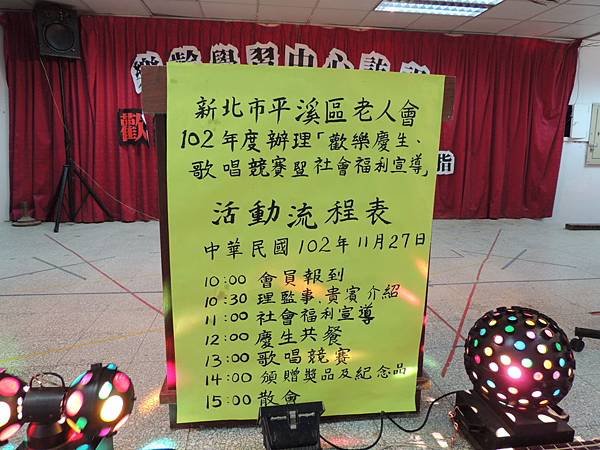 樂齡學習中心
歡
指
新北市平溪區老人會
102年度辦理「歡樂慶生、
歌唱競賽暨社會福利宣導」
活動流程表
中華民國102年11月27日
10:00 會員報到
10:30 理監事、貴賓介紹
11:00 社會福利宣導
12:00 慶生共餐
13:00 歌唱競賽
14:00 頒贈獎品及紀念品
15:00 散會